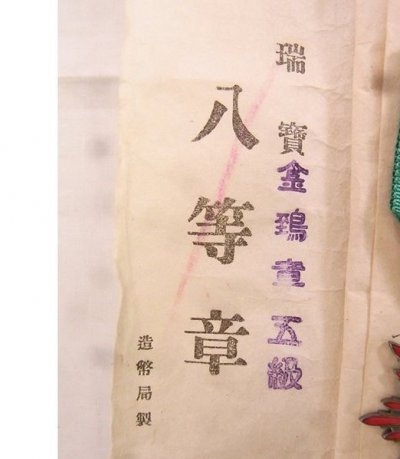 瑞寶金鵄章五級
八等章
造幣局製